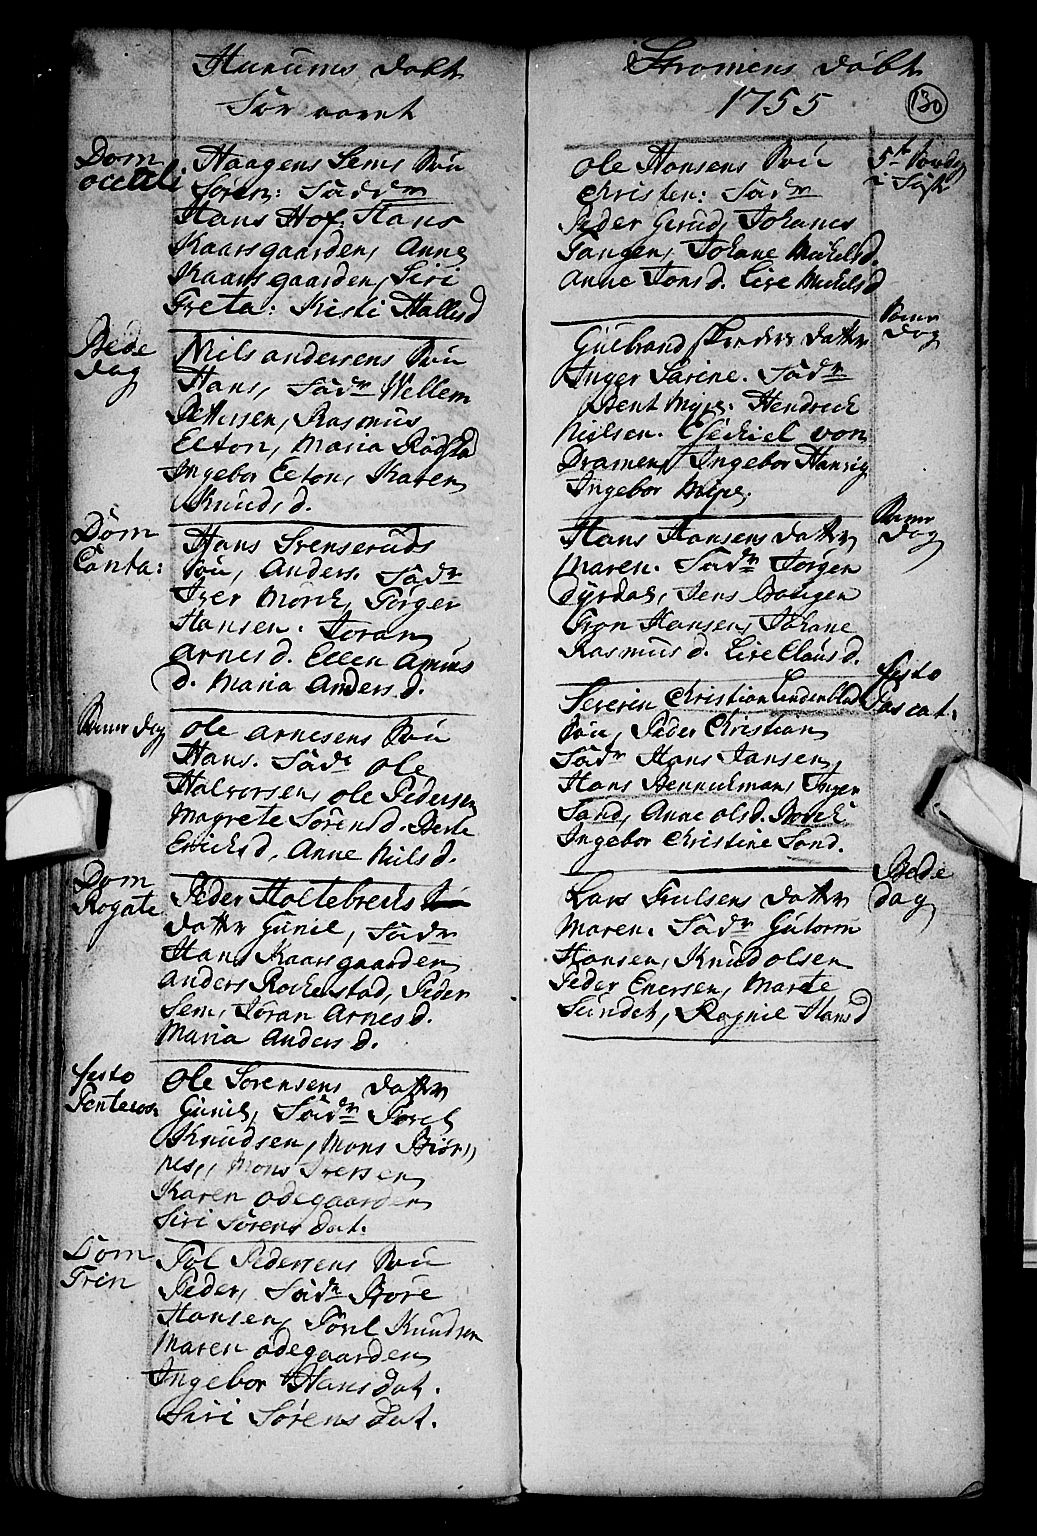 Hurums Døbt
for aaret
Dom
occuli
Haagens Sems Søn
Søren: Fadrn
Hans Hof: Hans
Kaarsgaarden, Anne
Kaarsgaarden, Siri
Greta: Kirsti Hallesd
Bede
dag
Nils andersens Søn
Hans, Fadrn Wellem
Pettersen, Rasmus
Eelton, Maria Rødstad
Ingebor Eeton, Karen
Knuds d.
Dom
Canta:
Hans Svenseruds
Søn, Anders. Fadrn
Iver Morck, Jørgen
Hansen. Joran
Arnes d. Ellen Amus
d. Maria Anders d.
Bønne dag
Ole Arnesens Søn
Hans. Fadr ole
Halvorsen, ole Pedersen
Magrete Sørens d. Berte
Ericks d, Anne Nils d.
Dom
Rogate
Peder Holtebrecks
datter Gunil, Fadrn
Hans Kaarsgaarden
Anders Rockestad, Peder
Sem, Joran Arnes d.
Maria Anders d.
festo
Penteros:
Ole Sørensens datter
Gunil, Fadrn Torel
Knudsen, Mons Biør
nes, Mons Iversen
Karen ødegaarden
Siri Sørens dat.
Dom
Trin
Tol Pedersens Søn
Peder, Fadrn Tore
Hansen, Toril Knudsen
Maren ødegaarden
Ingebor Hans dat.
Siri Sørens dat.
Strømens døbt
1755
130
Ole Hansens Søn
Christen: Fadrn
Peder Gerud, Johanes
Tangen, Johane Mickelsd.
Anne Jons d. Live Mickels d
5te Søndag
i Fast
Gulbrand datter
Inger Sarine. Fadrn
Bent Myre. Hendrick
Nielsen. Esekiel von
Dramen, Ingebor Hansig
Ingebor Mype.
Bønne
dag
Hans Hansens datter
Maren. Fadrn Jørgen
Dyrdal, Jens Bangen
Gron Hansen, Johane
Rasmus d. Live Claus d.
Bønne
dag
Severin Christian Lindenblad
Søn, Peder Christian
Fadrn Hans Jansen,
Hans Hennickman, Inger
Sand, Anne ols d. Morck
Ingebor Christine Sand.
festo
Pascat.
Lars Trulsens datter
Maren. Fadrn Gutorm
Hansen, Knud olsen
Peder Enersen, Marte
Sundet, Ragnil Hans d
Bede
dag